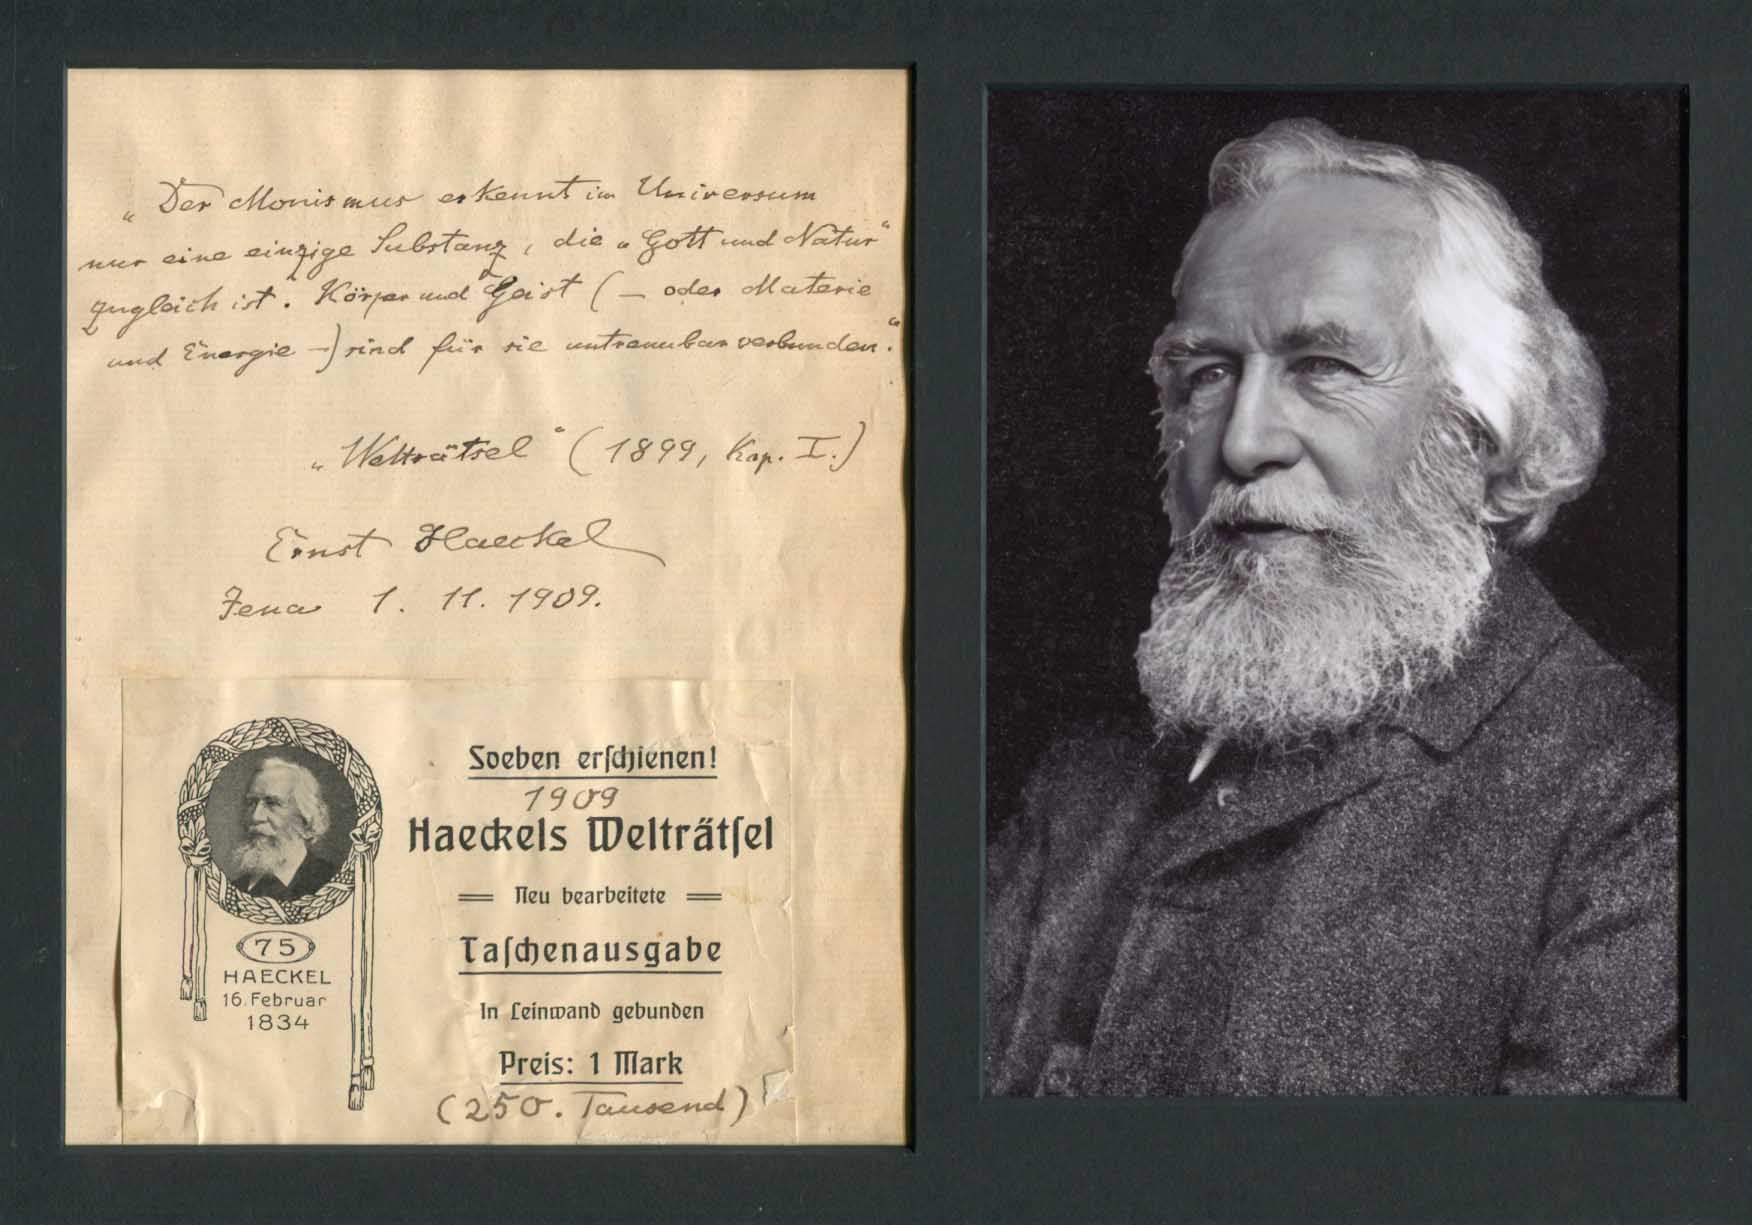 „Der Monismus erkennt im Universum
nur eine einzige Substanz, die „Gott und Natur“
zugleich ist. Körper und Geist (— oder Materie
und Energie —) sind für sie untrennbar verbunden.“
„Welträtsel“ (1899, Kap. I.)
Ernst Haeckel
Jena 1. 11. 1909.
75
HAECKEL
16. Februar
1834
Soeben erſchienen!
1909
Haeckels Welträtſel
Neu bearbeitete
Taſchenausgabe
In Leinwand gebunden
Preis: 1 Mark
(250. Tausend)